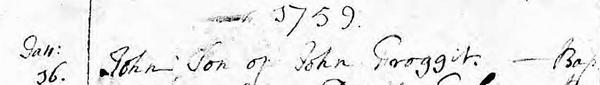 1759.
Jan:
16. John Son of John Froggit. — Bap